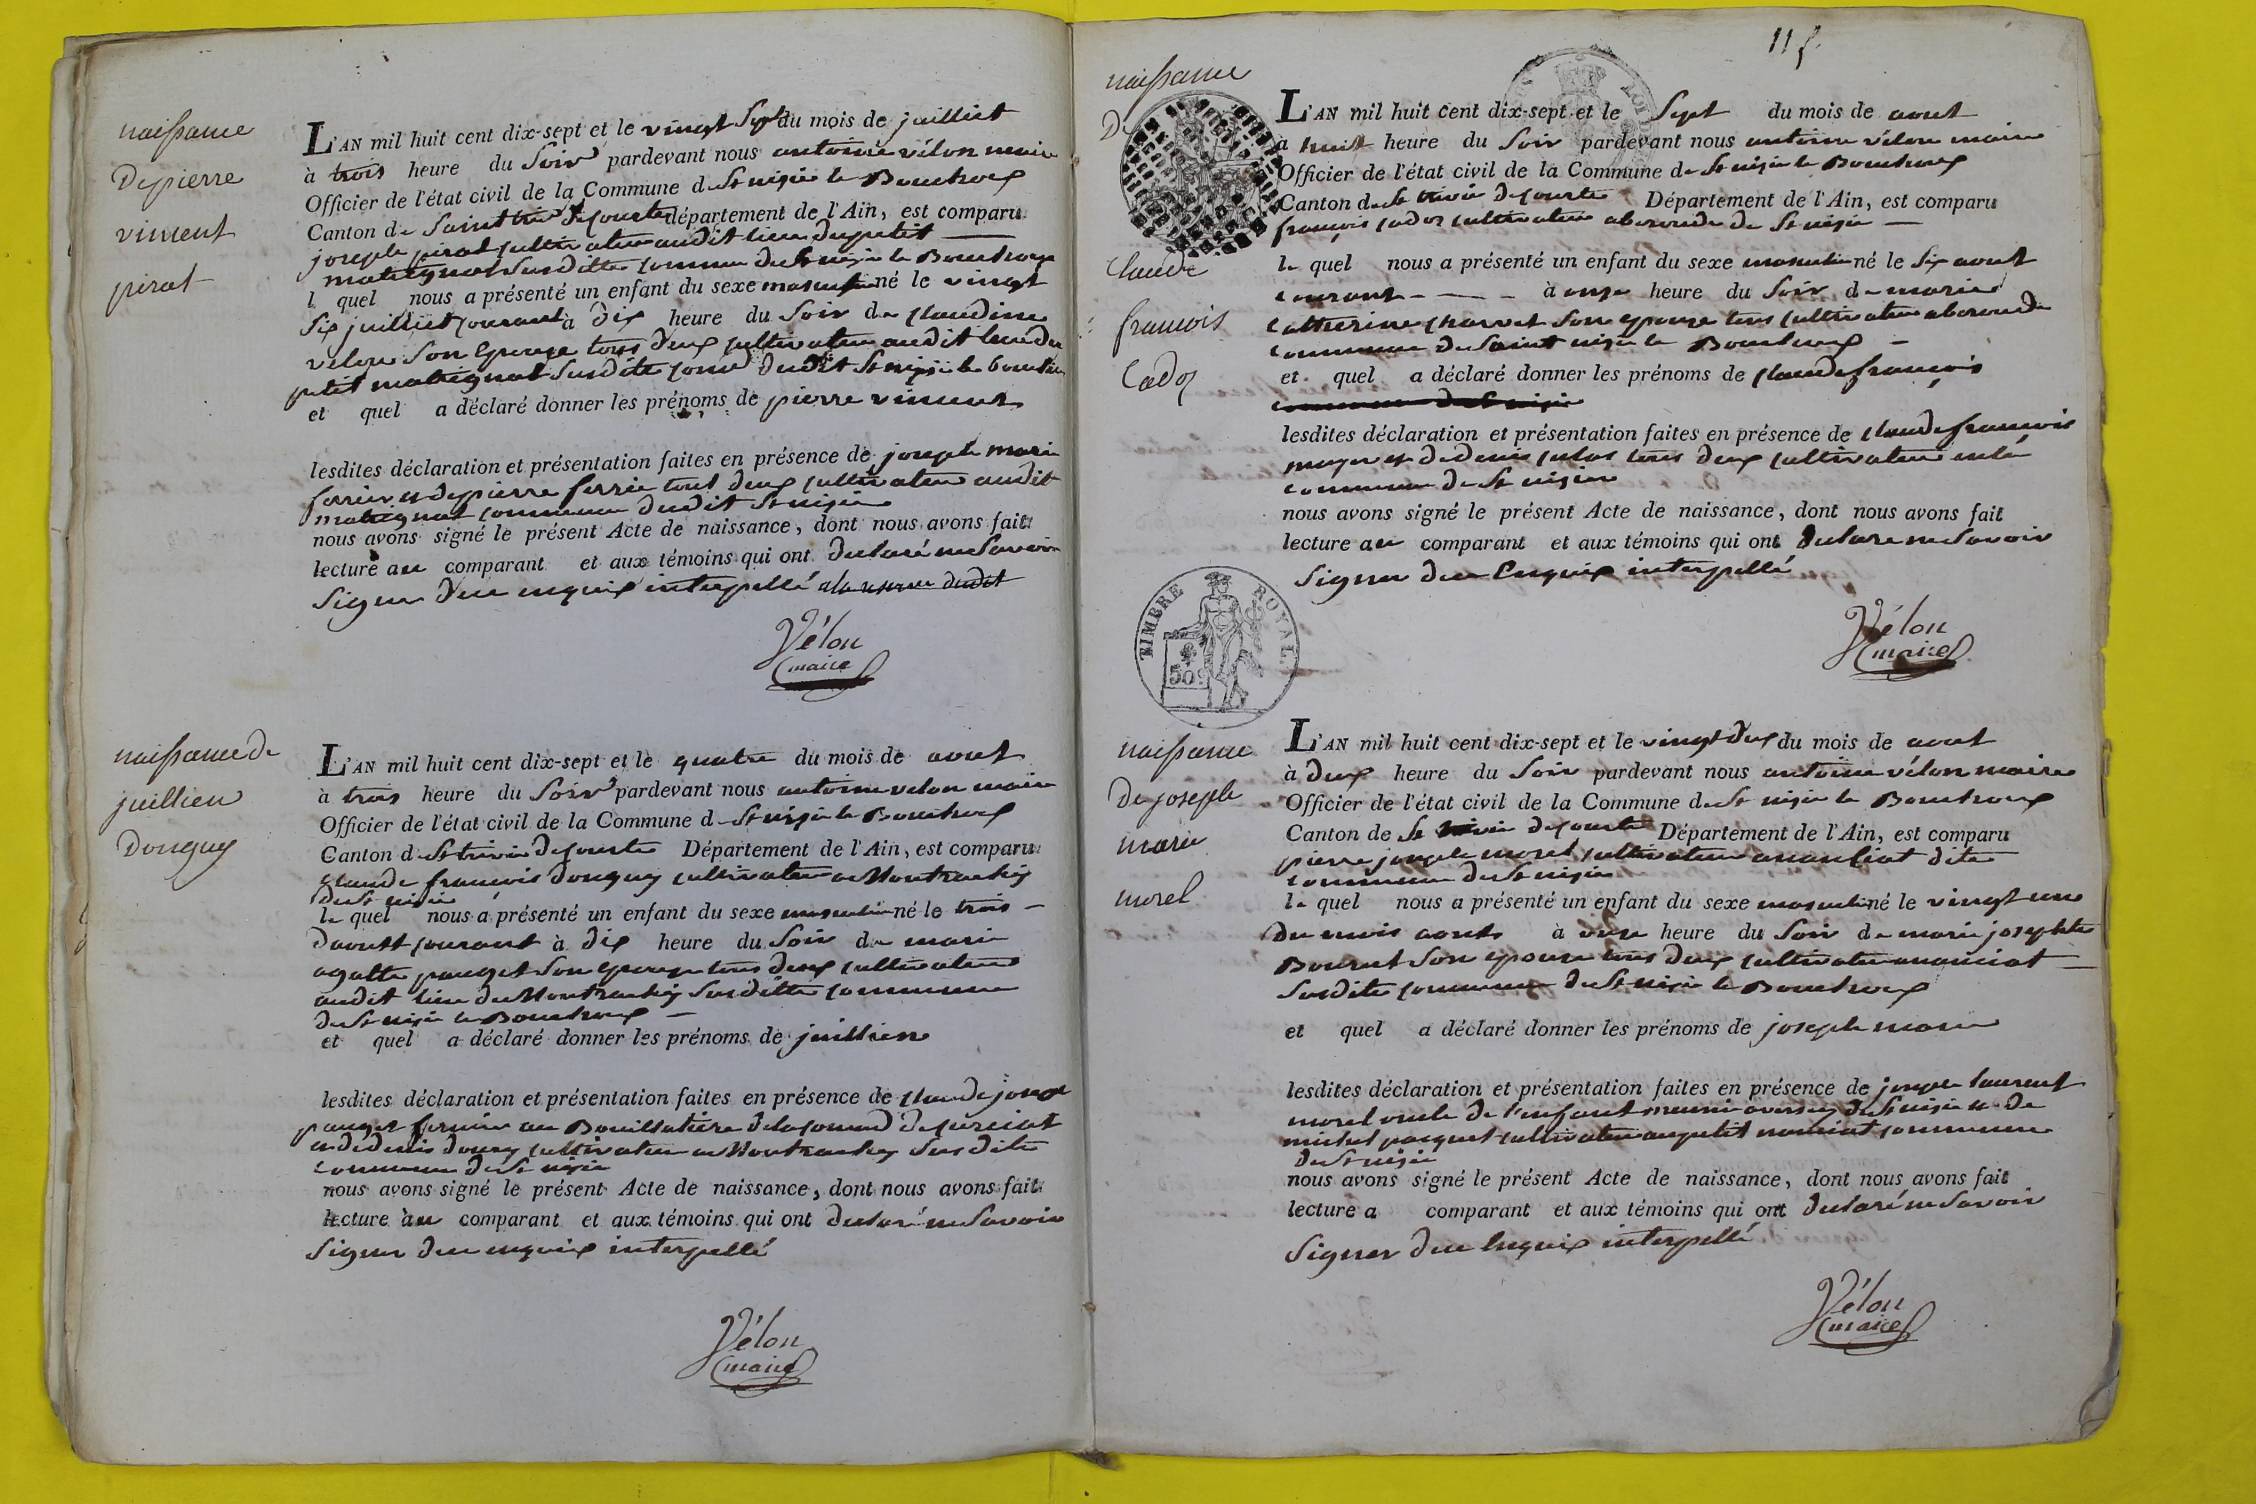 naissance
De pierre
vincent
pirat
L'AN mil huit cent dix-sept et le vingt Sept du mois de juilliet
à trois heure du Soir pardevant nous antoine vélon maire
Officier de l'état civil de la Commune de St nizié le Bouchoux
Canton de Saint trivié de Courtes département de l'Ain, est comparu
joseph pirat cultivateur audit lieu du petit
matignat Susditte commune de St nizié le Bouchoux
le quel nous a présenté un enfant du sexe masculin né le vingt
Six juilliet courant à dix heure du Soir de claudine
vélon Son Epouse tous deux cultivateur audit lieu du
petit matignat Susdite comne dudit St nizié le bouchoux
et quel a déclaré donner les prénoms de pierre vincent
lesdites déclaration et présentation faites en présence de joseph marie
ferrier et de pierre ferrié tout deux cultivateur audit
matignat commune dudit St nizié
nous avons signé le présent Acte de naissance, dont nous avons fait
lecture au comparant et aux témoins qui ont declaré ne Savoir
Signer de ce enquis interpellé a la reserve dudit
Vélon
maire
naissance de
juillien
Donguy
L'AN mil huit cent dix-sept et le quatre du mois de aout
à trois heure du Soir pardevant nous antoine velon maire
Officier de l'état civil de la Commune d St nizié le Bouchoux
Canton d St trivié de Courtes Département de l'Ain, est comparu
Claude françois donguy cultivateur a Montrachy
de St nizié
le quel nous a présenté un enfant du sexe masculin né le trois
daoust courant à dix heure du Soir de marie
agatte pauget Son epouse tous deux cultivateur
audit lieu de Montrachy Susditte commune
de St nizié le Bouchoux
et quel a déclaré donner les prénoms de juillien
lesdites déclaration et présentation faites en présence de claude joseph
pauget fermier au Bouillatière de la comune de curciat
et de denis donguy cultivateur a Montrachy Sus dite
commune de St nizié
nous avons signé le présent Acte de naissance, dont nous avons fait
lecture au comparant et aux témoins qui ont declaré ne Savoir
Signer de ce enquis interpellé
Vélon
maire
115
naissance
De
claude
francois
Cadoz
L'AN mil huit cent dix-sept et le Sept du mois de aout
à huit heure du Soir pardevant nous antoine vélon maire
Officier de l'état civil de la Commune de St nizié le Bouchoux
Canton de St trivié de Courtes Département de l'Ain, est comparu
françois cadoz cultivateur a de St nizié
le quel nous a présenté un enfant du sexe masculin né le Six aout
courant à onze heure du Soir de marie
Catherine charvet Son epouse tous cultivateur a
commune de Saint nizié le Bouchoux
et quel a déclaré donner les prénoms de claude françois
commune de St nizié
lesdites déclaration et présentation faites en présence de claude francois
moyer et de denis tous deux cultivateur en la
commune de St nizié
nous avons signé le présent Acte de naissance, dont nous avons fait
lecture au comparant et aux témoins qui ont declare ne Savoir
Signer de ce Enquis interpellé
Vélon
maire
TIMBRE ROYAL
50c
naissance
De joseph
marie
morel
L'AN mil huit cent dix-sept et le vingt deux du mois de aout
à deux heure du Soir pardevant nous antoine vélon maire
Officier de l'état civil de la Commune de St nizié le Bouchoux
Canton de St trivié de Courtes Département de l'Ain, est comparu
pierre joseph morel cultivateur a dite
commune de St nizié
le quel nous a présenté un enfant du sexe masculin né le vingt une
du mois aout à onze heure du Soir de marie josephte
Bourcet Son epouse tous deux cultivateur
Susdite commune de St nizié le Bouchoux
et quel a déclaré donner les prénoms de joseph marie
lesdites déclaration et présentation faites en présence de joseph laurent
morel oncle de l'enfant de St nizié et de
michel pacquet cultivateur au petit commune
de St nizié
nous avons signé le présent Acte de naissance, dont nous avons fait
lecture a comparant et aux témoins qui ont declaré ne Savoir
Signer de ce Enquis interpellé
Vélon
maire